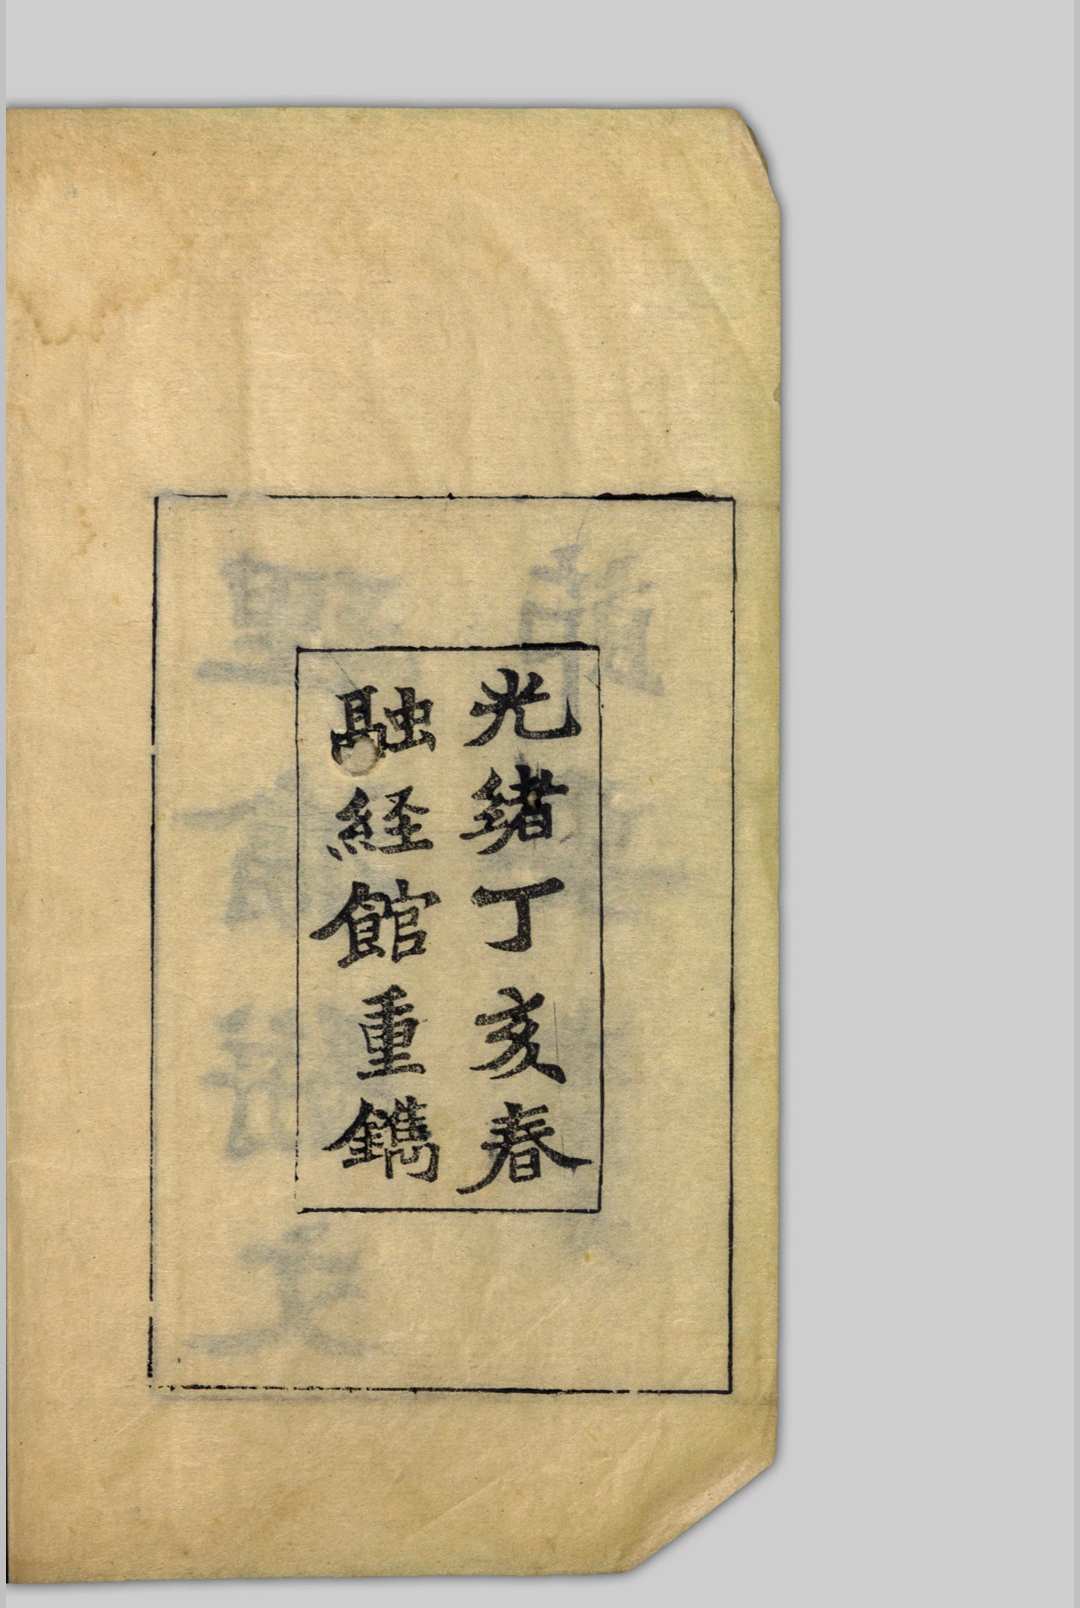 光緒丁亥春
融経館重鐫